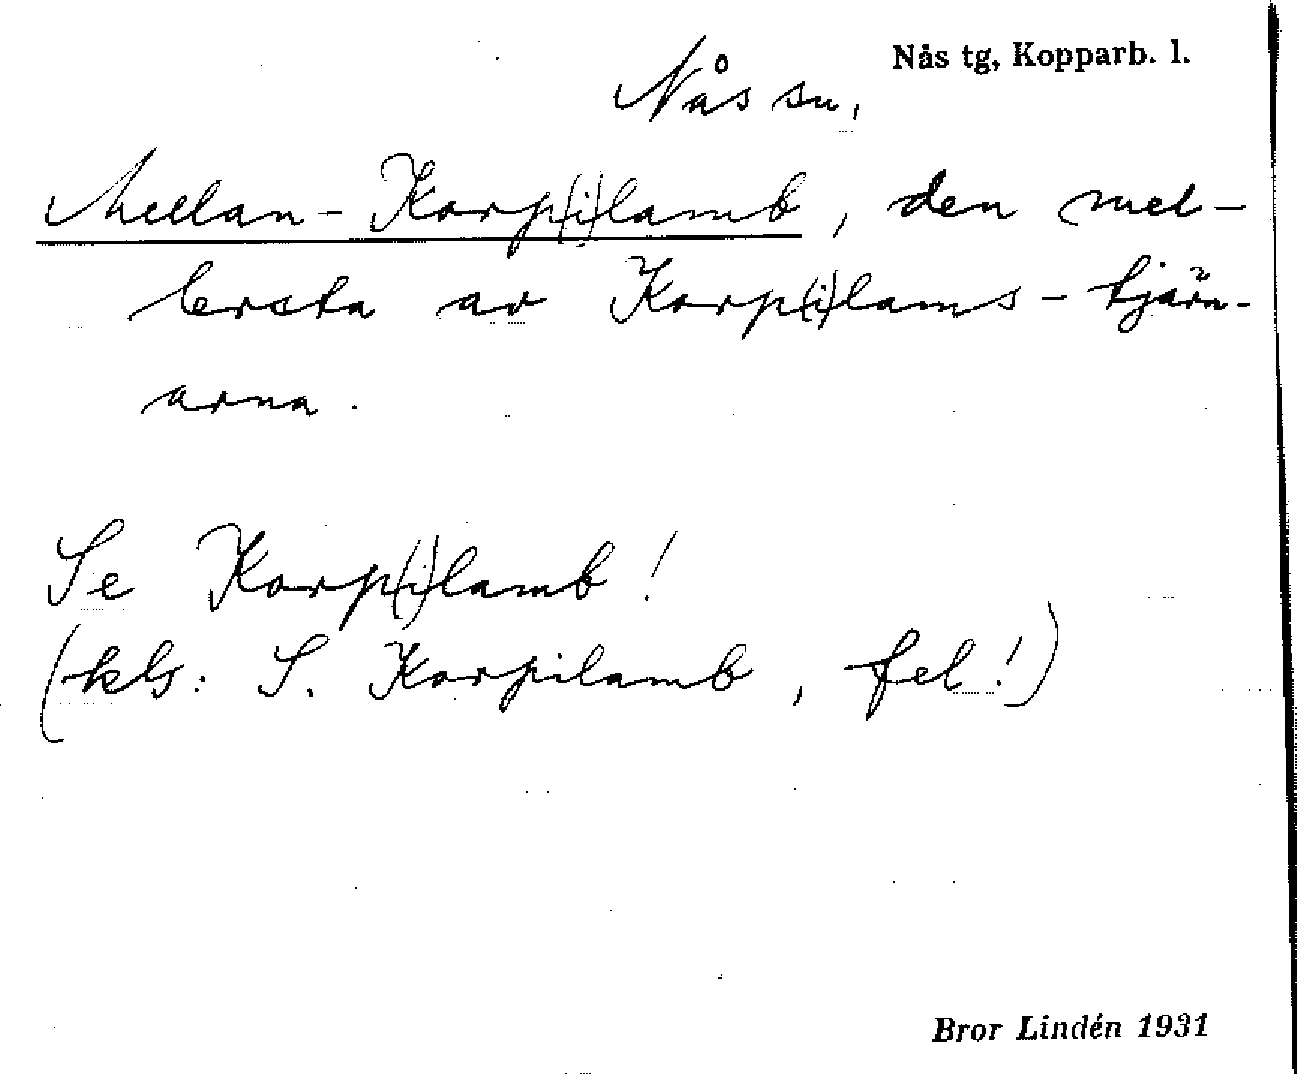 Nås tg, Kopparb. l.
Nås sn,
Mellan-Korp(i)lamb, den mel-
lersta av Korp(i)lams-tjärn-
arna.
Se Korp(i)lamb!
(kls: S. Korpilamb, fel!)
Bror Lindén 1931